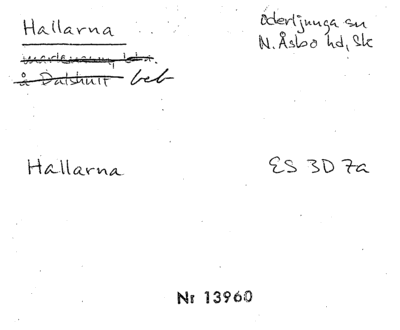 Hallarna
Oderljunga sn
N. Åsbo hd, Sk
å Dalshult beb
Hallarna
ES 3D 7a
Nr 13960